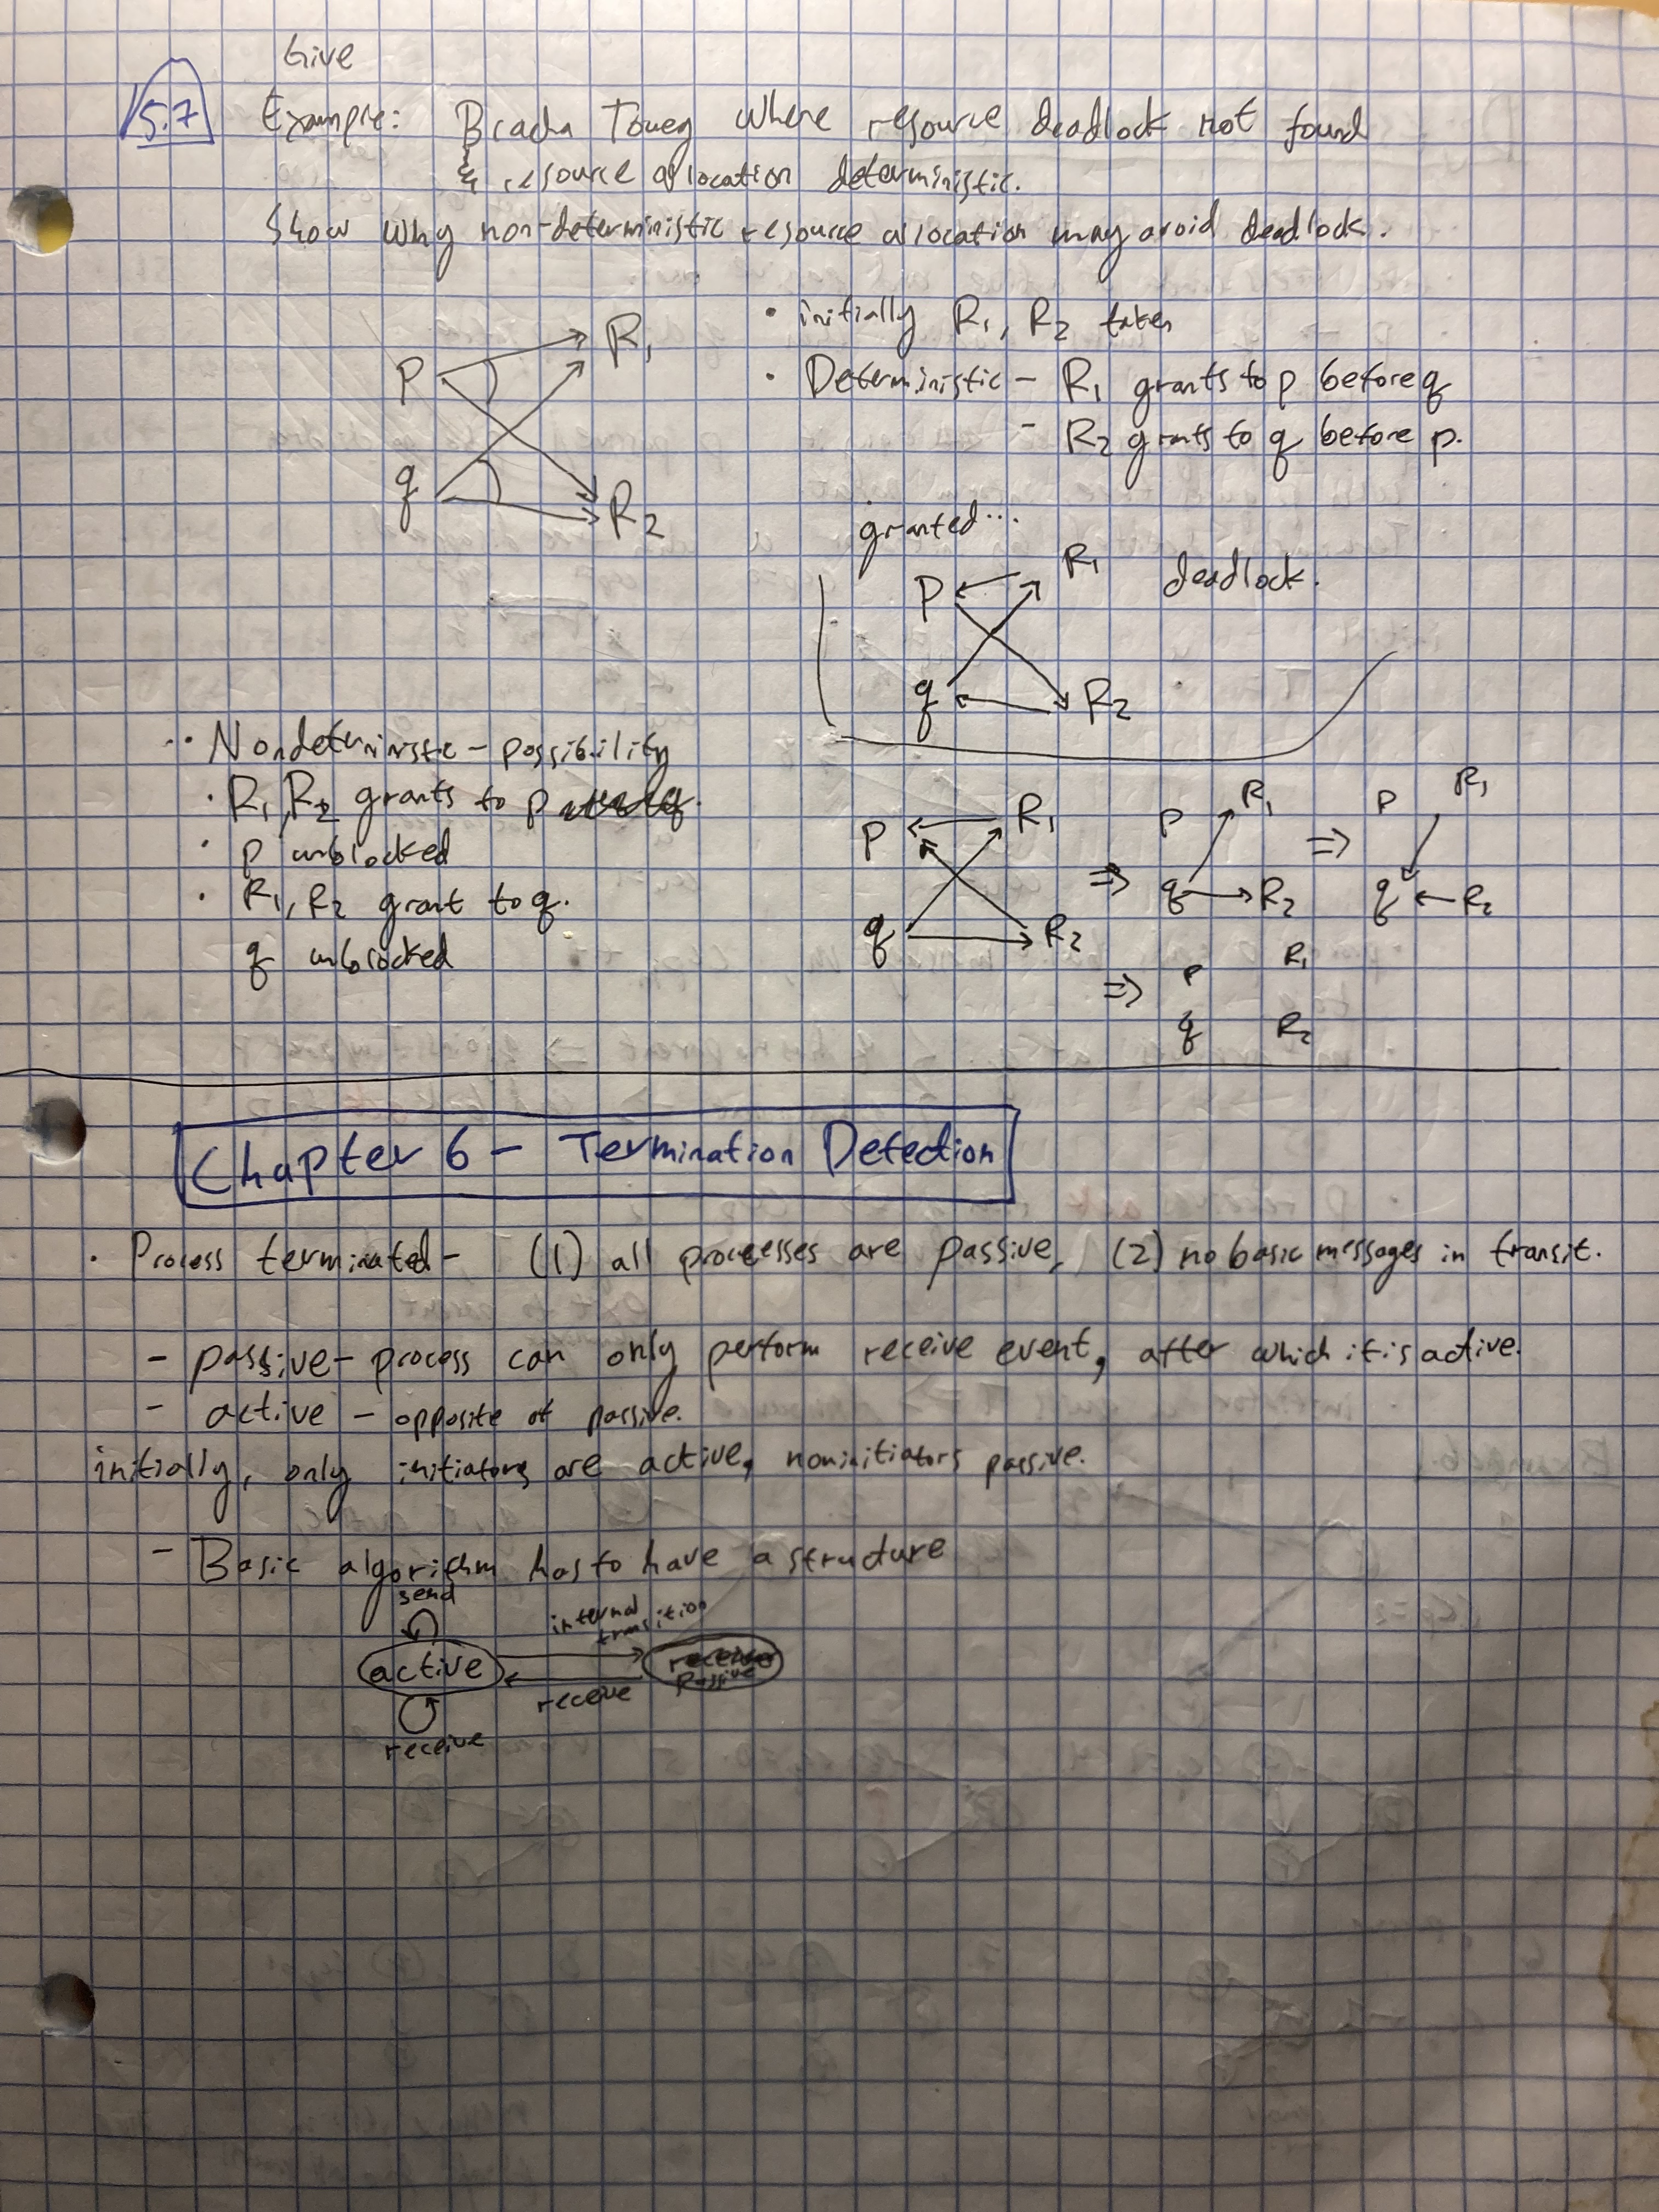 Give
5.7 Example: Bracha Toueg where resource deadlock not found
& resource allocation deterministic.
Show why non-deterministic resource allocation may avoid deadlock.
P R1
q R2
• initially R1, R2 taken
• Deterministic - R1 grants to p before q
- R2 grants to q before p.
granted...
P R1 deadlock.
q R2
• Nondeterministic - possibility
• R1, R2 grants to p
• p unblocked
• R1, R2 grant to q.
q unblocked
P R1
q R2
⇒ P R1
q R2
⇒ P R1
q R2
⇒ P R1
q R2
Chapter 6 - Termination Detection
• Process terminated - (1) all processes are passive, (2) no basic messages in transit.
- passive - process can only perform receive event, after which it is active.
- active - opposite of passive.
initially, only initiators are active, noninitiators passive.
- Basic algorithm has to have a structure
send
internal transition
active
passive
receive
receive